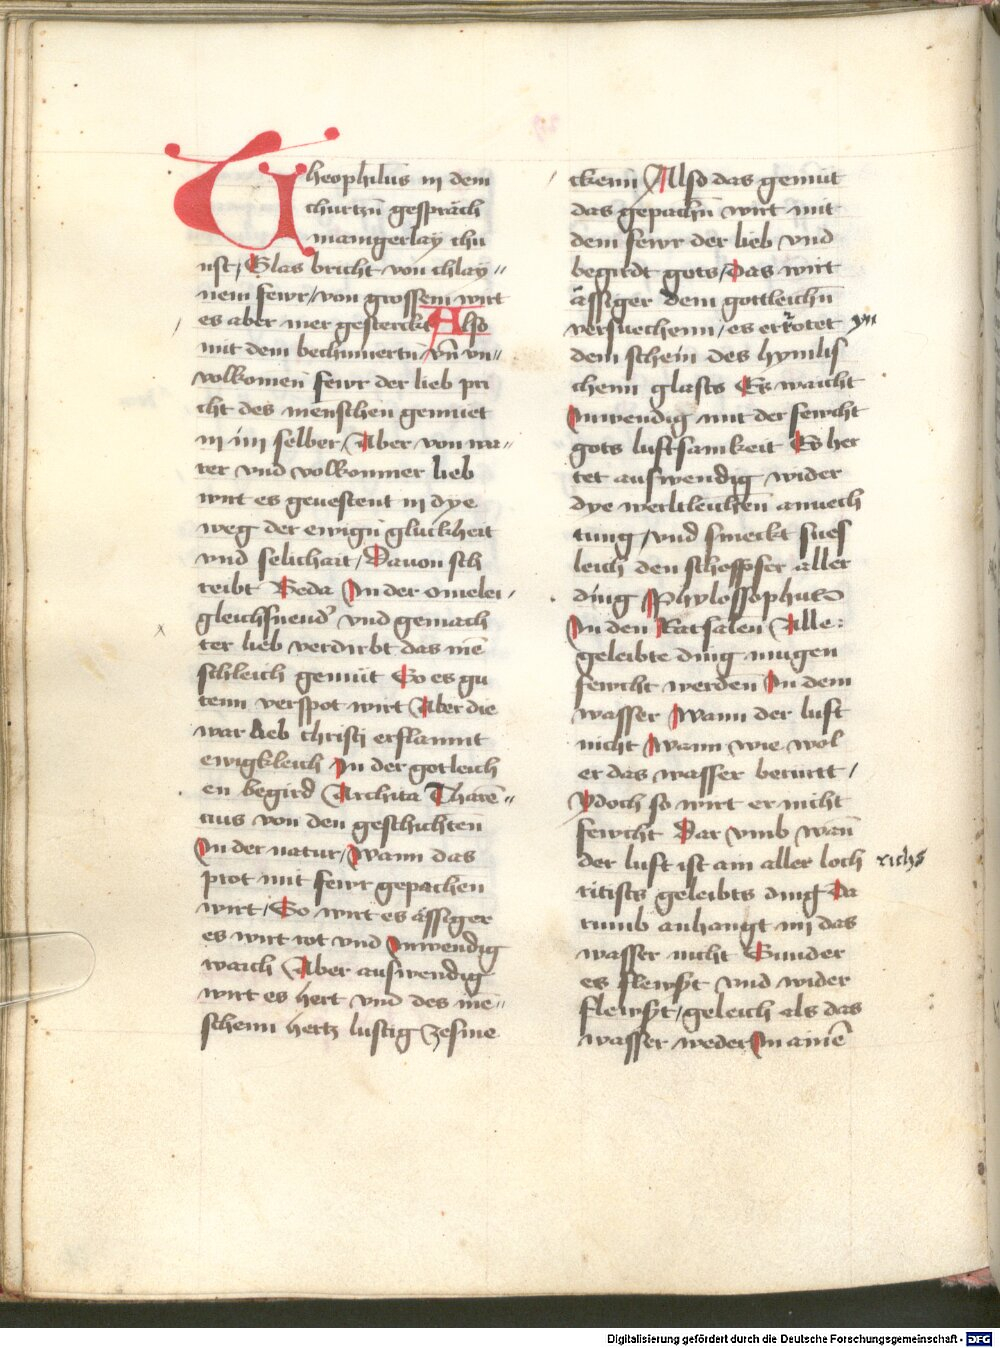 Theophilus in dem
churtzn̄ gespräch
manigerlay chu
nst / Glas bricht von chlay〃
nem fewr / von grossem wirt
es aber mer gesterckt Also
mit dem bechumertn̄ / vn̄ vn〃
volkomen fewr der lieb pri
cht des menschen gemuet
in im selber / Aber von wa〃
rer vnd volkomner lieb
wirt es geuestent in dye
weg der ewign̄ gluckheit
vnd selichait / Dauon sch
reibt Beda In der omelei /
gleichsnend' vnd gemach
ter lieb verdirbt das mē
schleich gemüt So es gu
tenn verspot wirt Aber die
war lieb christi erflammt
ewigkleich In der gotleich
en begird Archita Tharē〃
tius von den geschichten
In der natur / Wann das
prot mit fewr gepachen
wirt / So wirt es ässiger
es wirt rot vnd Inwendig
waich Aber auswendig
wirt es hert vnd des mē〃
schenn hertz lustig zesme
ckenn / Allso das gemüt
das gepachn̄ wirt mit
dem fewr der lieb vnd
begirdt gots / Das wirt
ässiger dem gottleichn̄
versuechenn / es errotet yn
dem schein des hymlis
chenn glasts Es waicht
Inwendig mit der fewcht
gots lustsamkeit Es her
tet auswendig wider
dye werltleichen̄ anuech
tung / vnd smeckt sues
leich den schopfer aller
ding Phylossophus
In den Ratsalen̄ Alle:
geleibte ding mugen
fewcht werden̄ In dem
wasser Wann der luft
nicht Wann wie wol
er das wasser berürtt /
Ydoch so wirt er nicht
fewcht Dar vmb wan̄
der luft ist am aller loch richs
ritists geleibts ding Da
rumb anhangt im das
wasser nicht Sunder
es flewsst vnd wider
flewsst / geleich als das
wasser weder In ainē
Digitalisierung gefördert durch die Deutsche Forschungsgemeinschaft - DFG